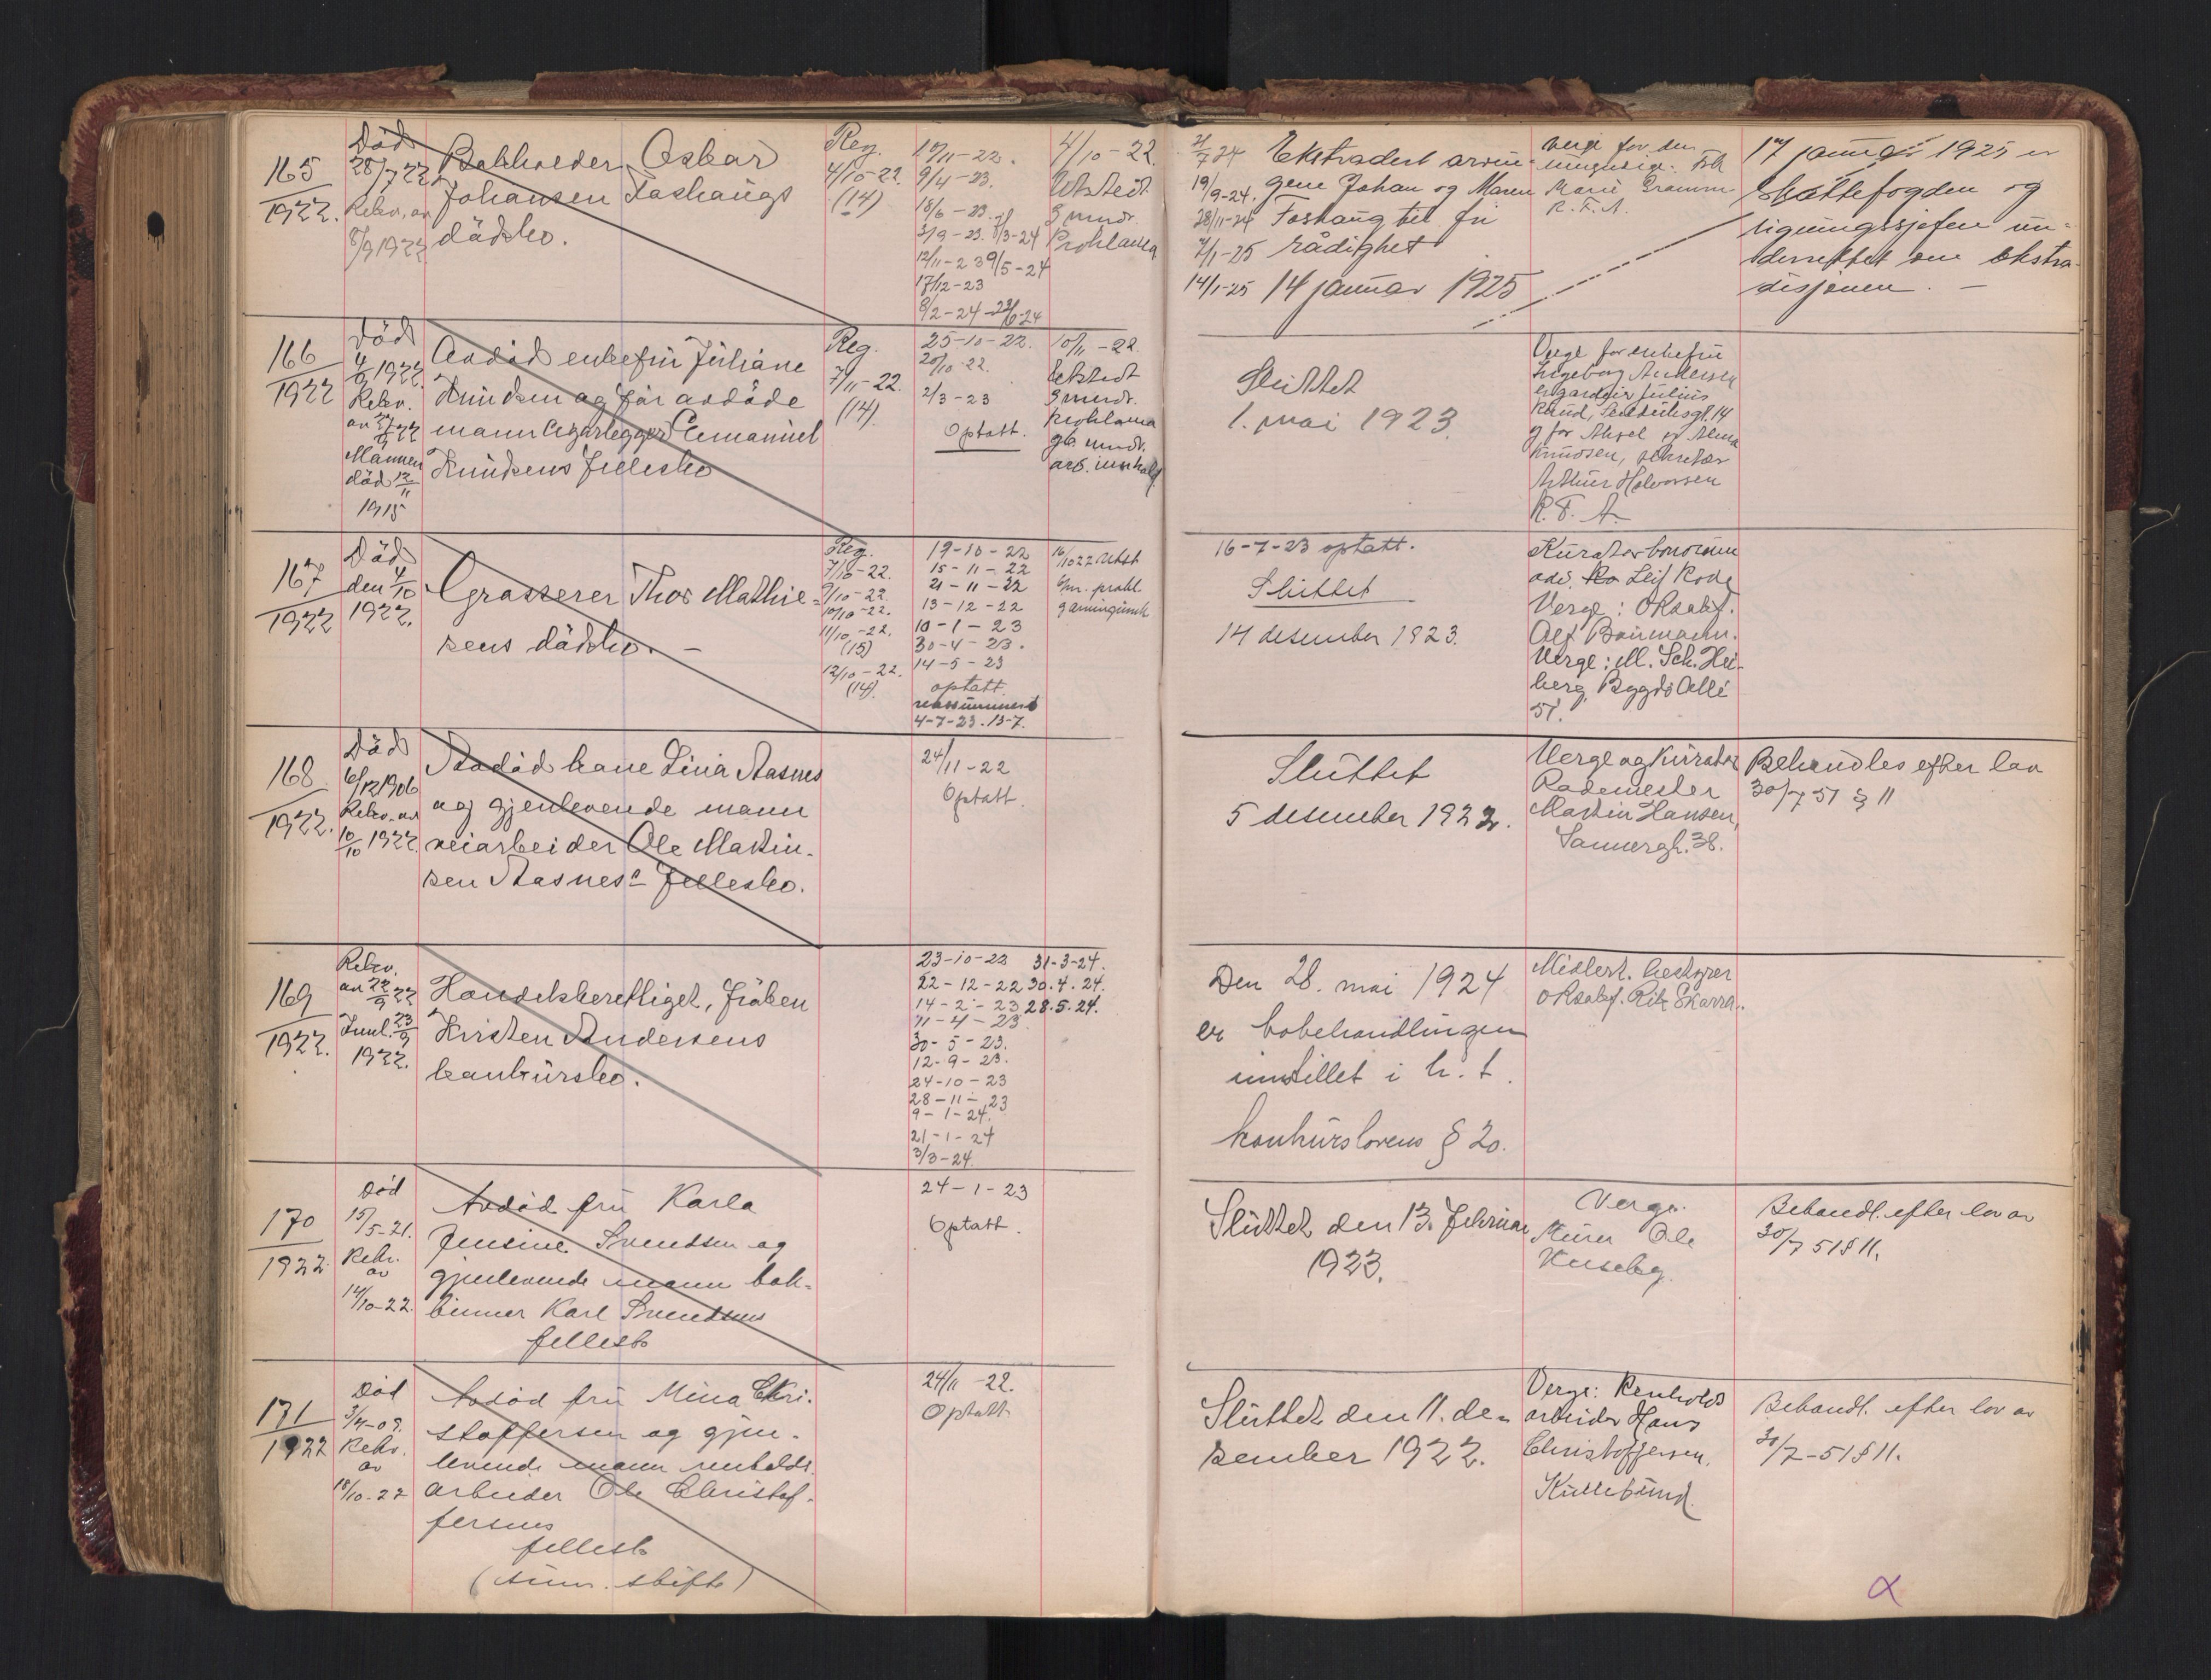 165
1922.
Död
28/7 22.
Rekv. av
8/9 1922
Bokholder Oskar
Johansen Foshaugs
dödsbo.
Reg.
4/10-22.
(14)
10/11-22.
9/4-23.
18/6-23.
3/9-23. 8/3-24
12/11-23 9/5-24
17/12-23
8/2-24 - 23/6-24
4/10-22.
Utstedt
9 mndr.
Proklama
21/7 24
19/9-24.
28/11-24
7/1-25
14/1-25
Ekstradert arvin-
gene Johan og Maren
Foshaug til fri
rådighet
14 januar 1925
Verge for den
umyndige: Frk
Marie Gramm
R. F. A.
17 januar 1925 er
skattefogden og
ligningssjefen un-
derrettet om ekstra-
disjonen. -
166
1922
Död
4/9 1922.
Rekv.
av 22
Mannen
död 12/11
1915
Avdöd enkefru Juliane
Knudsen og för avdöde
mann cigarlegger Emanuel
Knudsens fellesbo
Reg.
7/11-22.
(14).
25-10-22.
20/10-22.
2/3-23
Optatt.
10/11-22.
Utstedt
9 mndr.
proklama
gb. mndr.
arb. innkalg
Sluttet
1. mai 1923.
Verge for enkefru
Ingeborg Andersen
er gardeier Julius
Rund, 14
og for Aksel og Alma
Knudsen, sekretær
Arthur Halvorsen
R. F. A.
167
1922
Död
den 4/10
1922.
Grosserer Thor Mathie-
sens dödsbo. -
Reg.
7/10-22.
9/10-22.
10/10-22.
11/10-22.
(15)
12/10-22.
(14).
19-10-22
15-11-22
21-11-22
13-12-22
10-1-23
30-4-23.
14-5-23
optatt.
reassumert
4-7-23. 13-7.
16/10 22 Utst
6 mr. prokl.
9 aming. innk
16-7-23 optatt.
Sluttet
14 desember 1923.
Kurator bonorum
adv. Leif Rode
Verge: O.R.sakf.
Alf Baumann.
Verge: M. Sch. Hei-
berg, Bygdö Allé
51.
168
1922.
Död
6/12 1906
Rekv. av
10/10 1922.
Avdöd kone Lina Aasnes
og gjenlevende mann
veiarbeider Ole Martin-
sen Aasnes's fellesbo.
24/11-22
Optatt.
Sluttet
5 desember 1922.
Verge og Kurator
Rodemester
Martin Hansen,
Sannergt. 38.
Behandles efter lov
30/7 51 § 11
169
1922.
Rekv.
av 22/9 22
Innl. 23/9
1922.
Handelsberettiget, fröken
Kirsten Andersens
konkursbo.
23-10-22 31-3-24.
22-12-22 30.4.24.
14-2-23 28.5.24.
11-4-23
30-5-23.
12-9-23.
24-10-23
28-11-23
9-1-24.
21-1-24
3/3-24.
Den 28. mai 1924
er bobehandlingen
innstillet i h. t.
konkurslovens § 20.
Midlert. bestyrer
O.R.sakf. Skarra.
170
1922
Död
15/5-21.
Rekv.
av
14/10-22.
Avdöd fru Karla
Jensine Svendsen og
gjenlevende mann bok-
binner Karl Svendsens
fellesbo
24-1-23
Optatt.
Sluttet den 13. februar
1923.
Verge.
Murer Ole
Huseby.
Behandl. efter lov av
30/7 51 § 11.
171
1922
Död
3/4-09.
Rekv.
av
18/10-22
Avdöd fru Mina Chri-
stoffersen og gjen-
levende mann renholds.
arbeider Ole Christof-
fersens
fellesbo
(sum. skifte)
24/11-22.
Optatt.
Sluttet den 11. de-
sember 1922.
Verge: Renholds
arbeider Hans
Christoffersen.
Kullebund
Behandl. efter lov av
30/7-51 § 11.